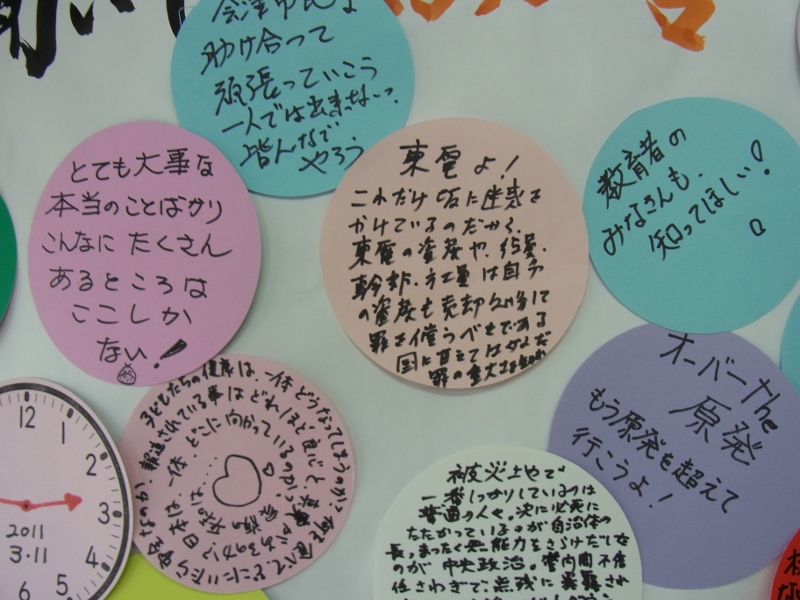 会津市民よ
助け合って
頑張っていこう
一人では出来ないっ、
皆んなで
やろう
とても大事な
本当のことばかり
こんなに たくさん
あるところは
ここしか
ない!
東電よ!
これだけ 皆に迷惑を
かけているのだから、
東電の資産や、役員、
幹部、社員は自分
の資産も売却処分して
罪を償うべきである
国に甘えてはダメだ
罪の重大さを
教育者の
みなさんも、
知ってほしい!
オーバーthe
原発
もう原発を超えて
行こうよ!
子どもたちの健康は、一体どうなってしまうのか?何を食べ、どこにいたら安全なのか、
報道されている事はどれほど良心と、真実があるのか!?
日本は、一体、どこに向かっているのか、
被災地やで
一番しっかりしているのは
普通の人々。次に必死に
たたかっているのが自治体の
長。まったく無能力をさらけだしな
のが 中央政治。菅内閣不信
任さわぎで、点残に暴露され
12
1
2
3
4
5
6
2011
3・11